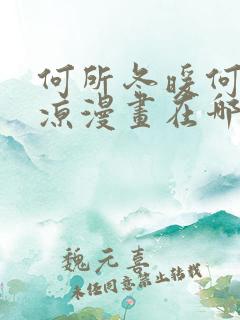 何所冬暖何
凉漫畫在哪
魏元喜
未任同意禁止转载